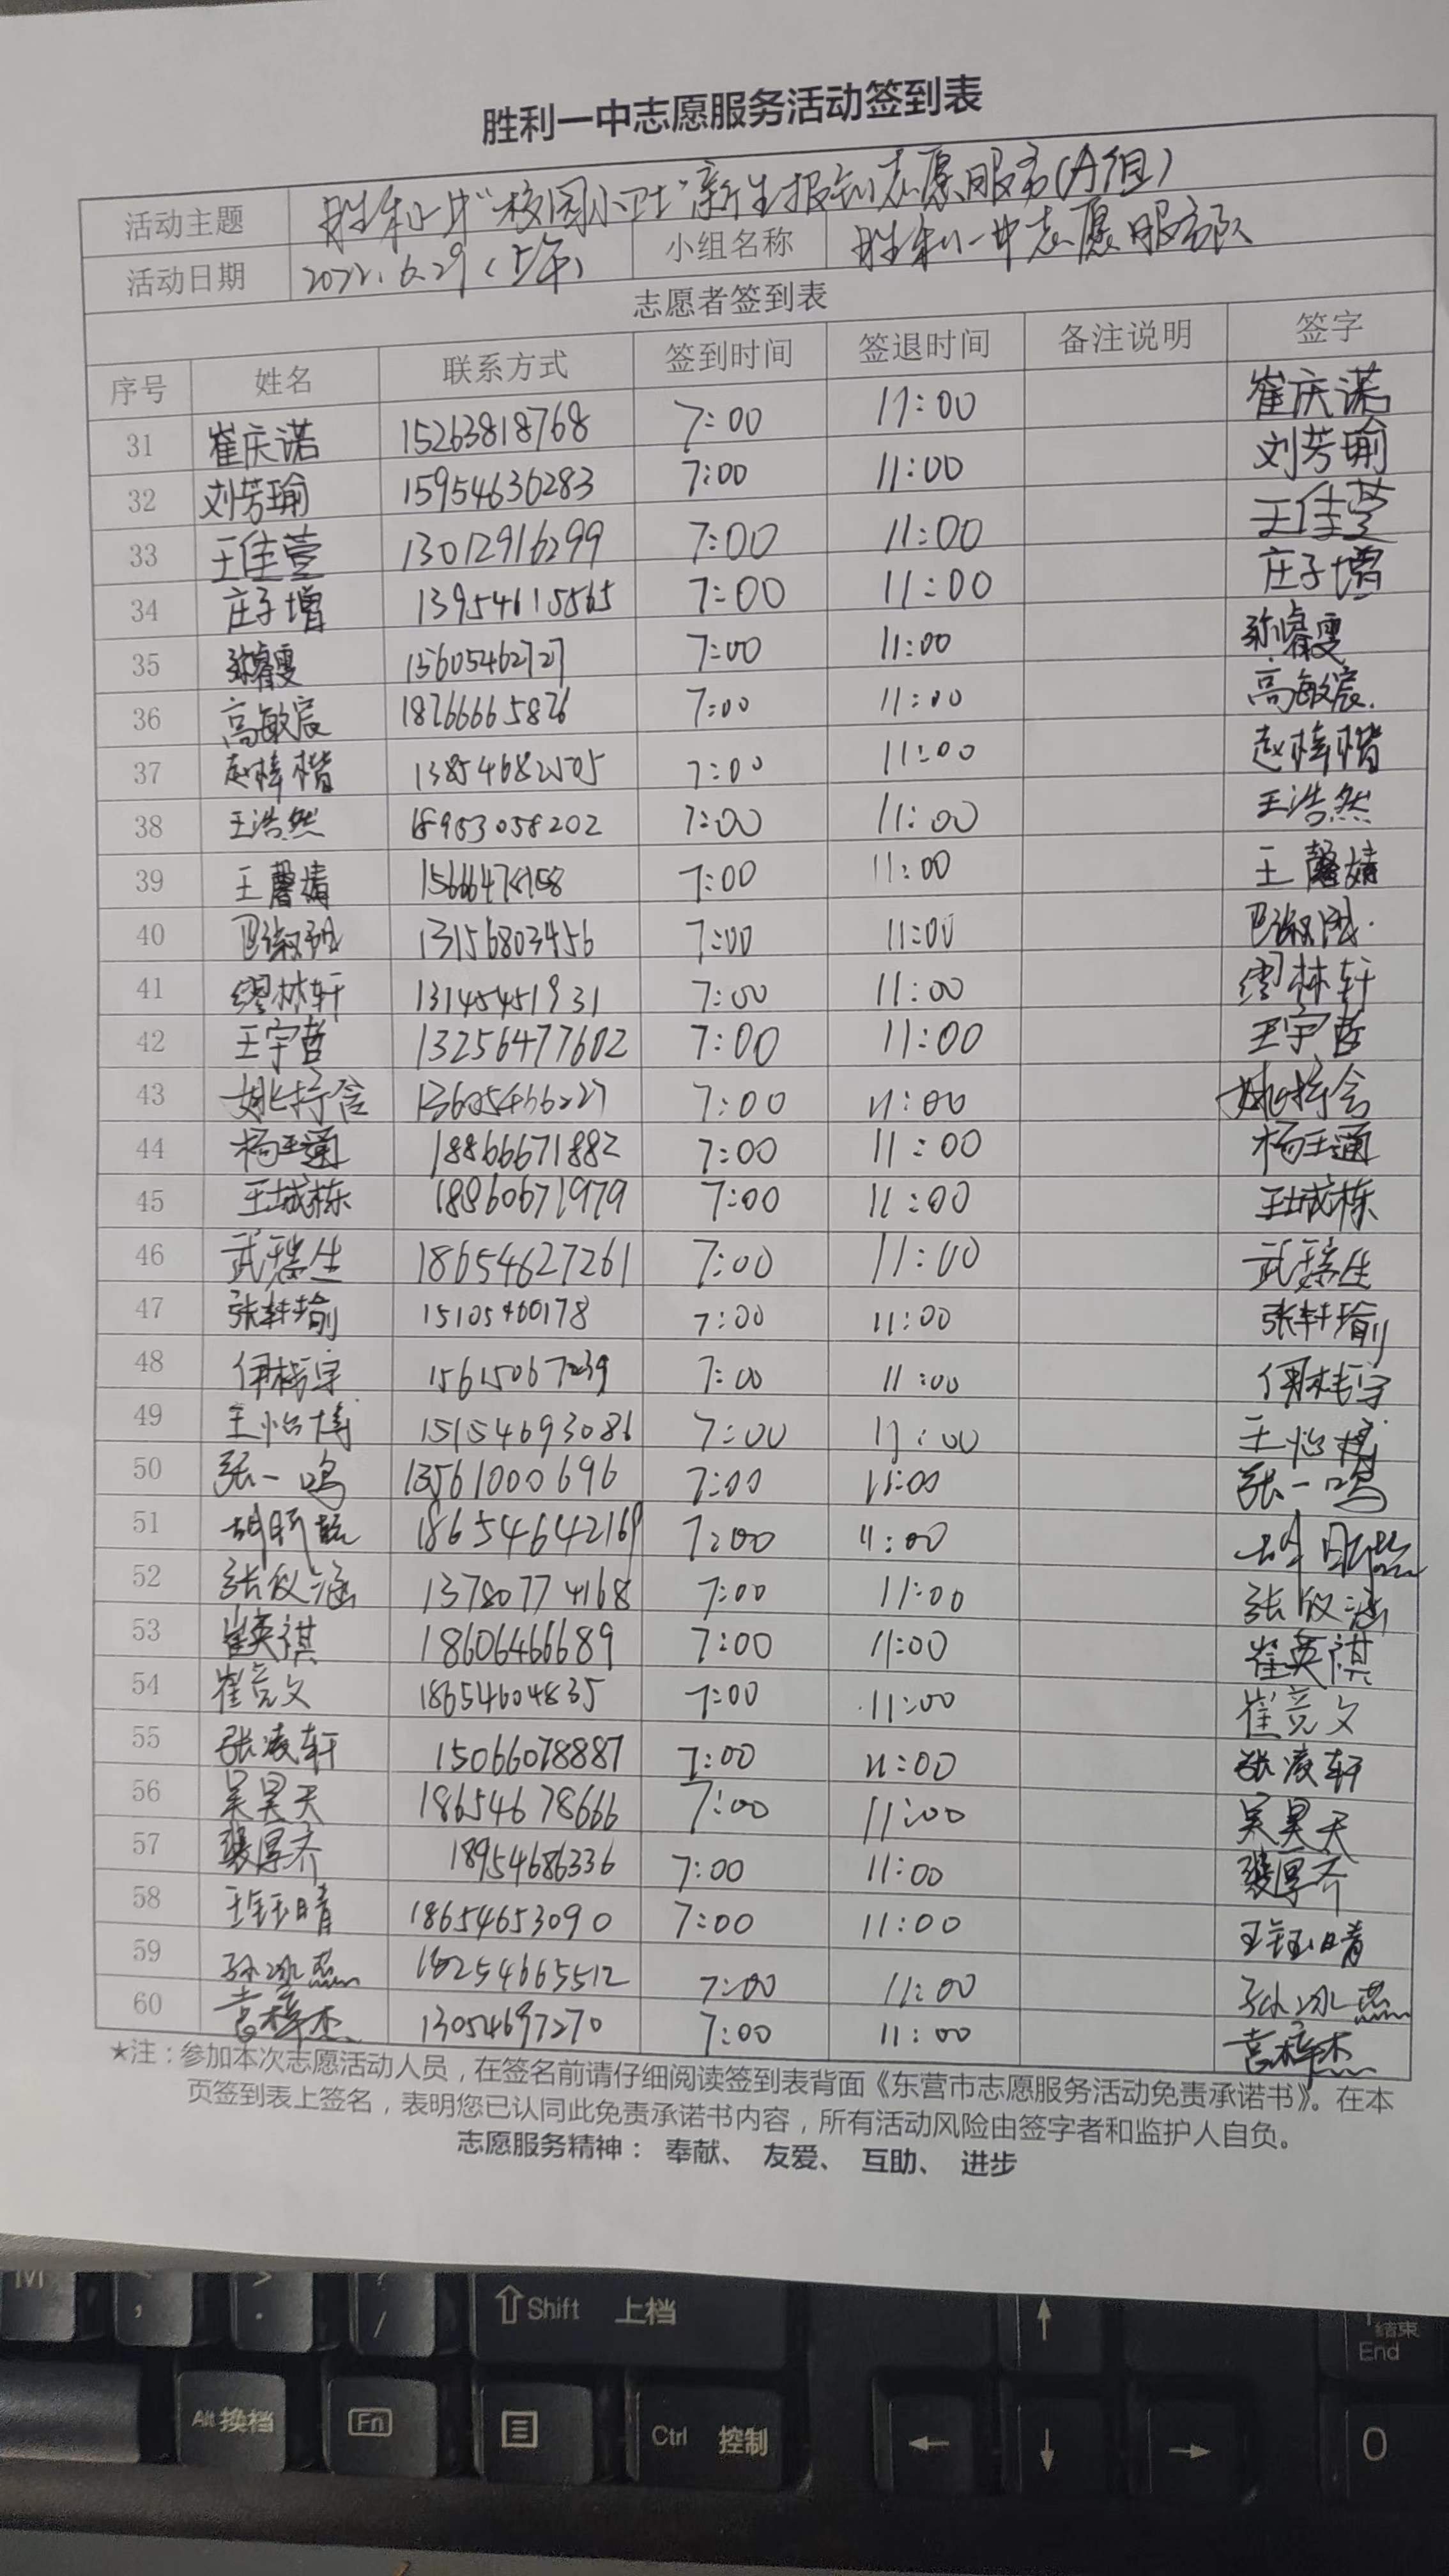 胜利一中志愿服务活动签到表
活动主题 胜利一中“校园小卫士”新生报到志愿服务(A组)
活动日期 2022.6.29(上午) 小组名称 胜利一中志愿服务队
志愿者签到表
序号 姓名 联系方式 签到时间 签退时间 备注说明 签字
31 崔庆诺 15263818768 7:00 11:00 崔庆诺
32 刘芳瑜 15954636283 7:00 11:00 刘芳瑜
33 王佳萱 13012916299 7:00 11:00 王佳萱
34 庄子增 13954615565 7:00 11:00 庄子增
35 15605462727 7:00 11:00
36 高敏宸 18266665826 7:00 11:00 高敏宸
37 赵梓楷 13854682505 7:00 11:00 赵梓楷
38 王浩然 18953058202 7:00 11:00 王浩然
39 王馨婧 7:00 11:00 王馨婧
40 13156803456 7:00 11:00
41 缪林轩 13145451931 7:00 11:00 缪林轩
42 王宇哲 13256477602 7:00 11:00 王宇哲
43 13605466227 7:00 11:00
44 杨玉通 18866671882 7:00 11:00 杨玉通
45 王城栋 18860671979 7:00 11:00 王城栋
46 武瑞生 18654627261 7:00 11:00 武瑞生
47 张轩瑜 15105460178 7:00 11:00 张轩瑜
48 7:00 11:00
49 王怡博 15154693086 7:00 11:00 王怡博
50 张一鸣 13561000696 7:00 11:00 张一鸣
51 18654642169 7:00 11:00
52 张仪涵 13780774168 7:00 11:00 张仪涵
53 崔英祺 18606466689 7:00 11:00 崔英祺
54 崔竞文 18654604835 7:00 11:00 崔竞文
55 张凌轩 15066078887 7:00 11:00 张凌轩
56 吴昊天 18654678666 7:00 11:00 吴昊天
57 裴厚齐 18954686336 7:00 11:00 裴厚齐
58 王钰晴 18654653090 7:00 11:00 王钰晴
59 孙冰焘 18254665512 7:00 11:00 孙冰焘
60 袁梓杰 13054697270 7:00 11:00 袁梓杰
★注:参加本次志愿活动人员,在签名前请仔细阅读签到表背面《东营市志愿服务活动免责承诺书》。在本
页签到表上签名,表明您已认同此免责承诺书内容,所有活动风险由签字者和监护人自负。
志愿服务精神: 奉献、 友爱、 互助、 进步
M < , > . ? / ⇧Shift 上档 ↑ 结束 End
Alt 换档 Fn Ctrl 控制 ← ↓ → 0